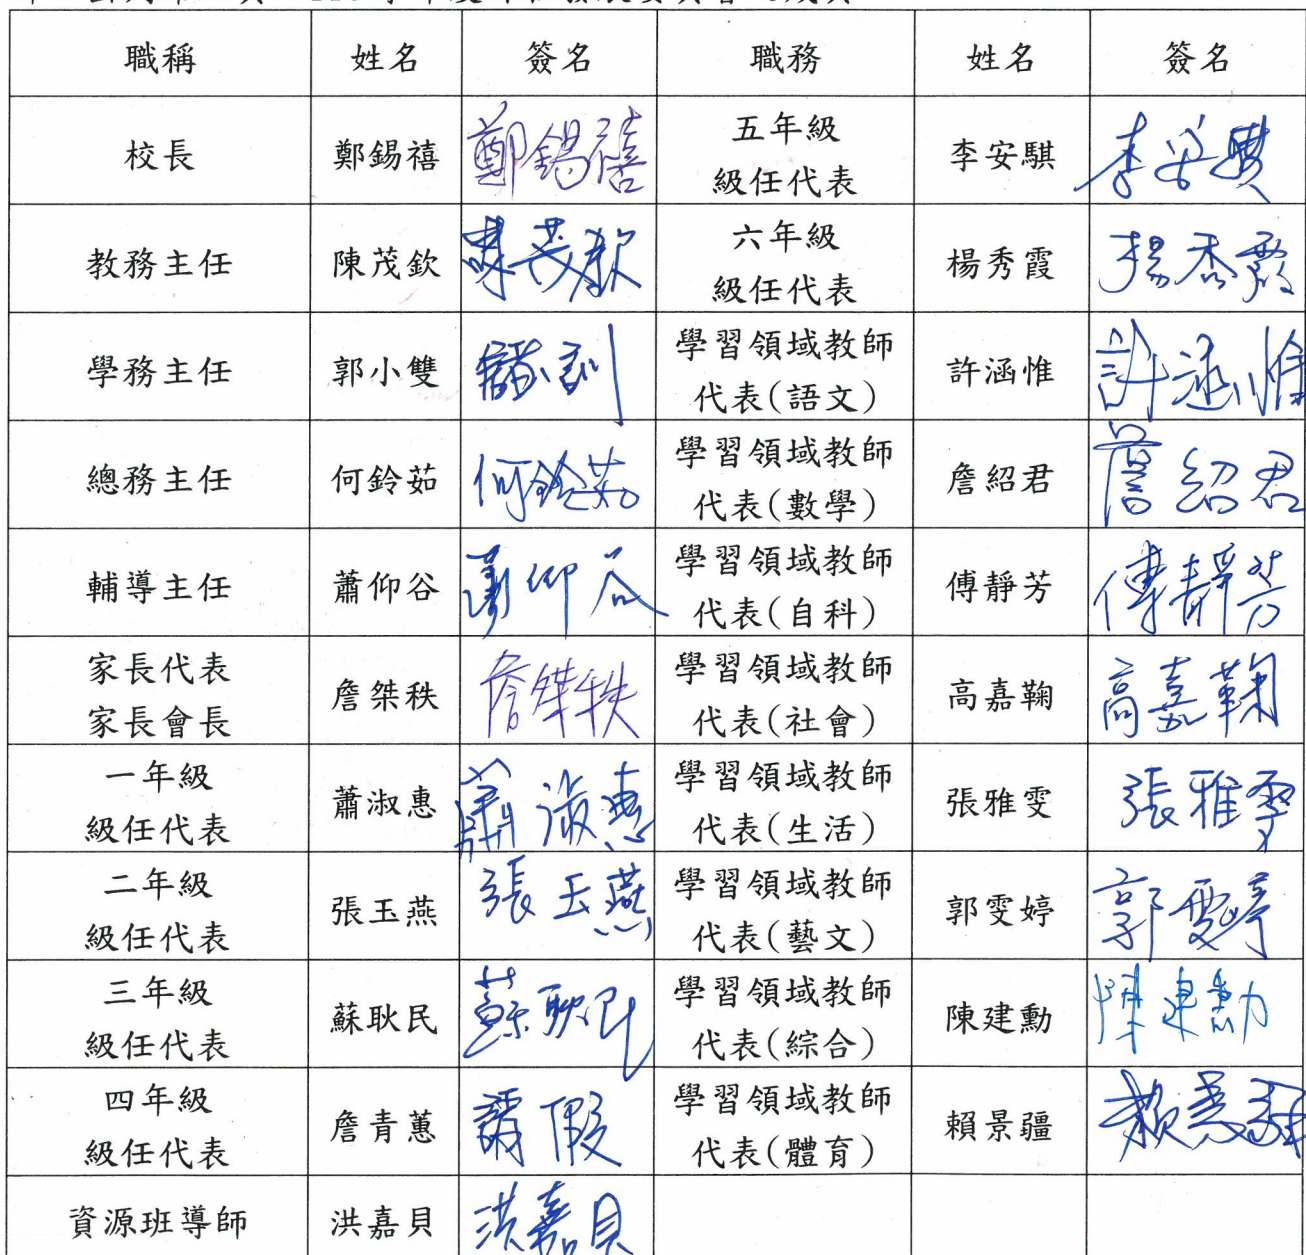 職稱 姓名 簽名 職務 姓名 簽名
校長 鄭錫禧 鄭錫禧 五年級 級任代表 李安騏 李安騏
教務主任 陳茂欽 陳茂欽 六年級 級任代表 楊秀霞 楊秀霞
學務主任 郭小雙 訓 學習領域教師 代表(語文) 許涵惟 許涵惟
總務主任 何鈴茹 何鈴茹 學習領域教師 代表(數學) 詹紹君 詹紹君
輔導主任 蕭仰谷 蕭仰谷 學習領域教師 代表(自科) 傅靜芳 傅靜芳
家長代表 家長會長 詹桀秩 詹桀秩 學習領域教師 代表(社會) 高嘉鞠 高嘉鞠
一年級 級任代表 蕭淑惠 蕭淑惠 學習領域教師 代表(生活) 張雅雯 張雅雯
二年級 級任代表 張玉燕 張玉燕 學習領域教師 代表(藝文) 郭雯婷 郭雯婷
三年級 級任代表 蘇耿民 蘇耿民 學習領域教師 代表(綜合) 陳建勳 陳建勳
四年級 級任代表 詹青蕙 請假 學習領域教師 代表(體育) 賴景疆 賴景疆
資源班導師 洪嘉貝 洪嘉貝